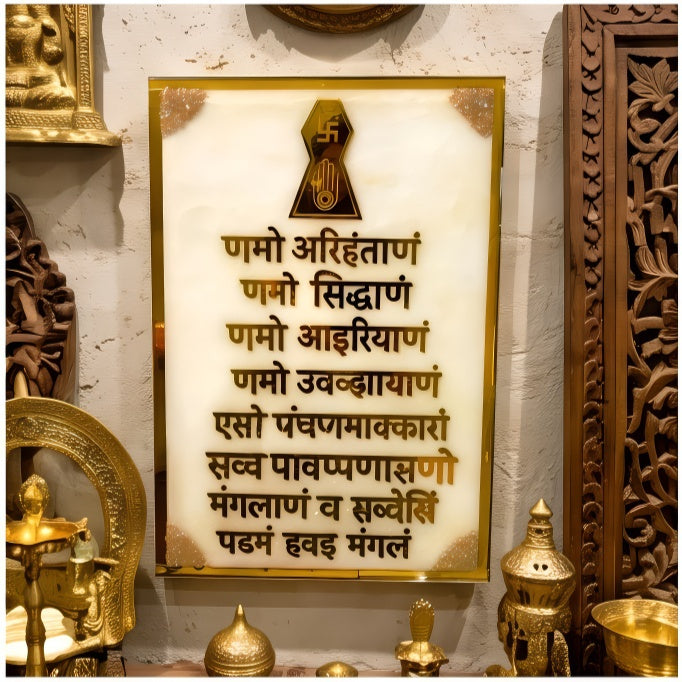 णमो अरिहंताणं
णमो सिद्धाणं
णमो आइरियाणं
णमो उवव्झायाणं
एसो पंचणमाक्कारां
सव्व पावप्पणासणो
मंगलाणं व सव्वेसिं
पडमं हवइ मंगलं